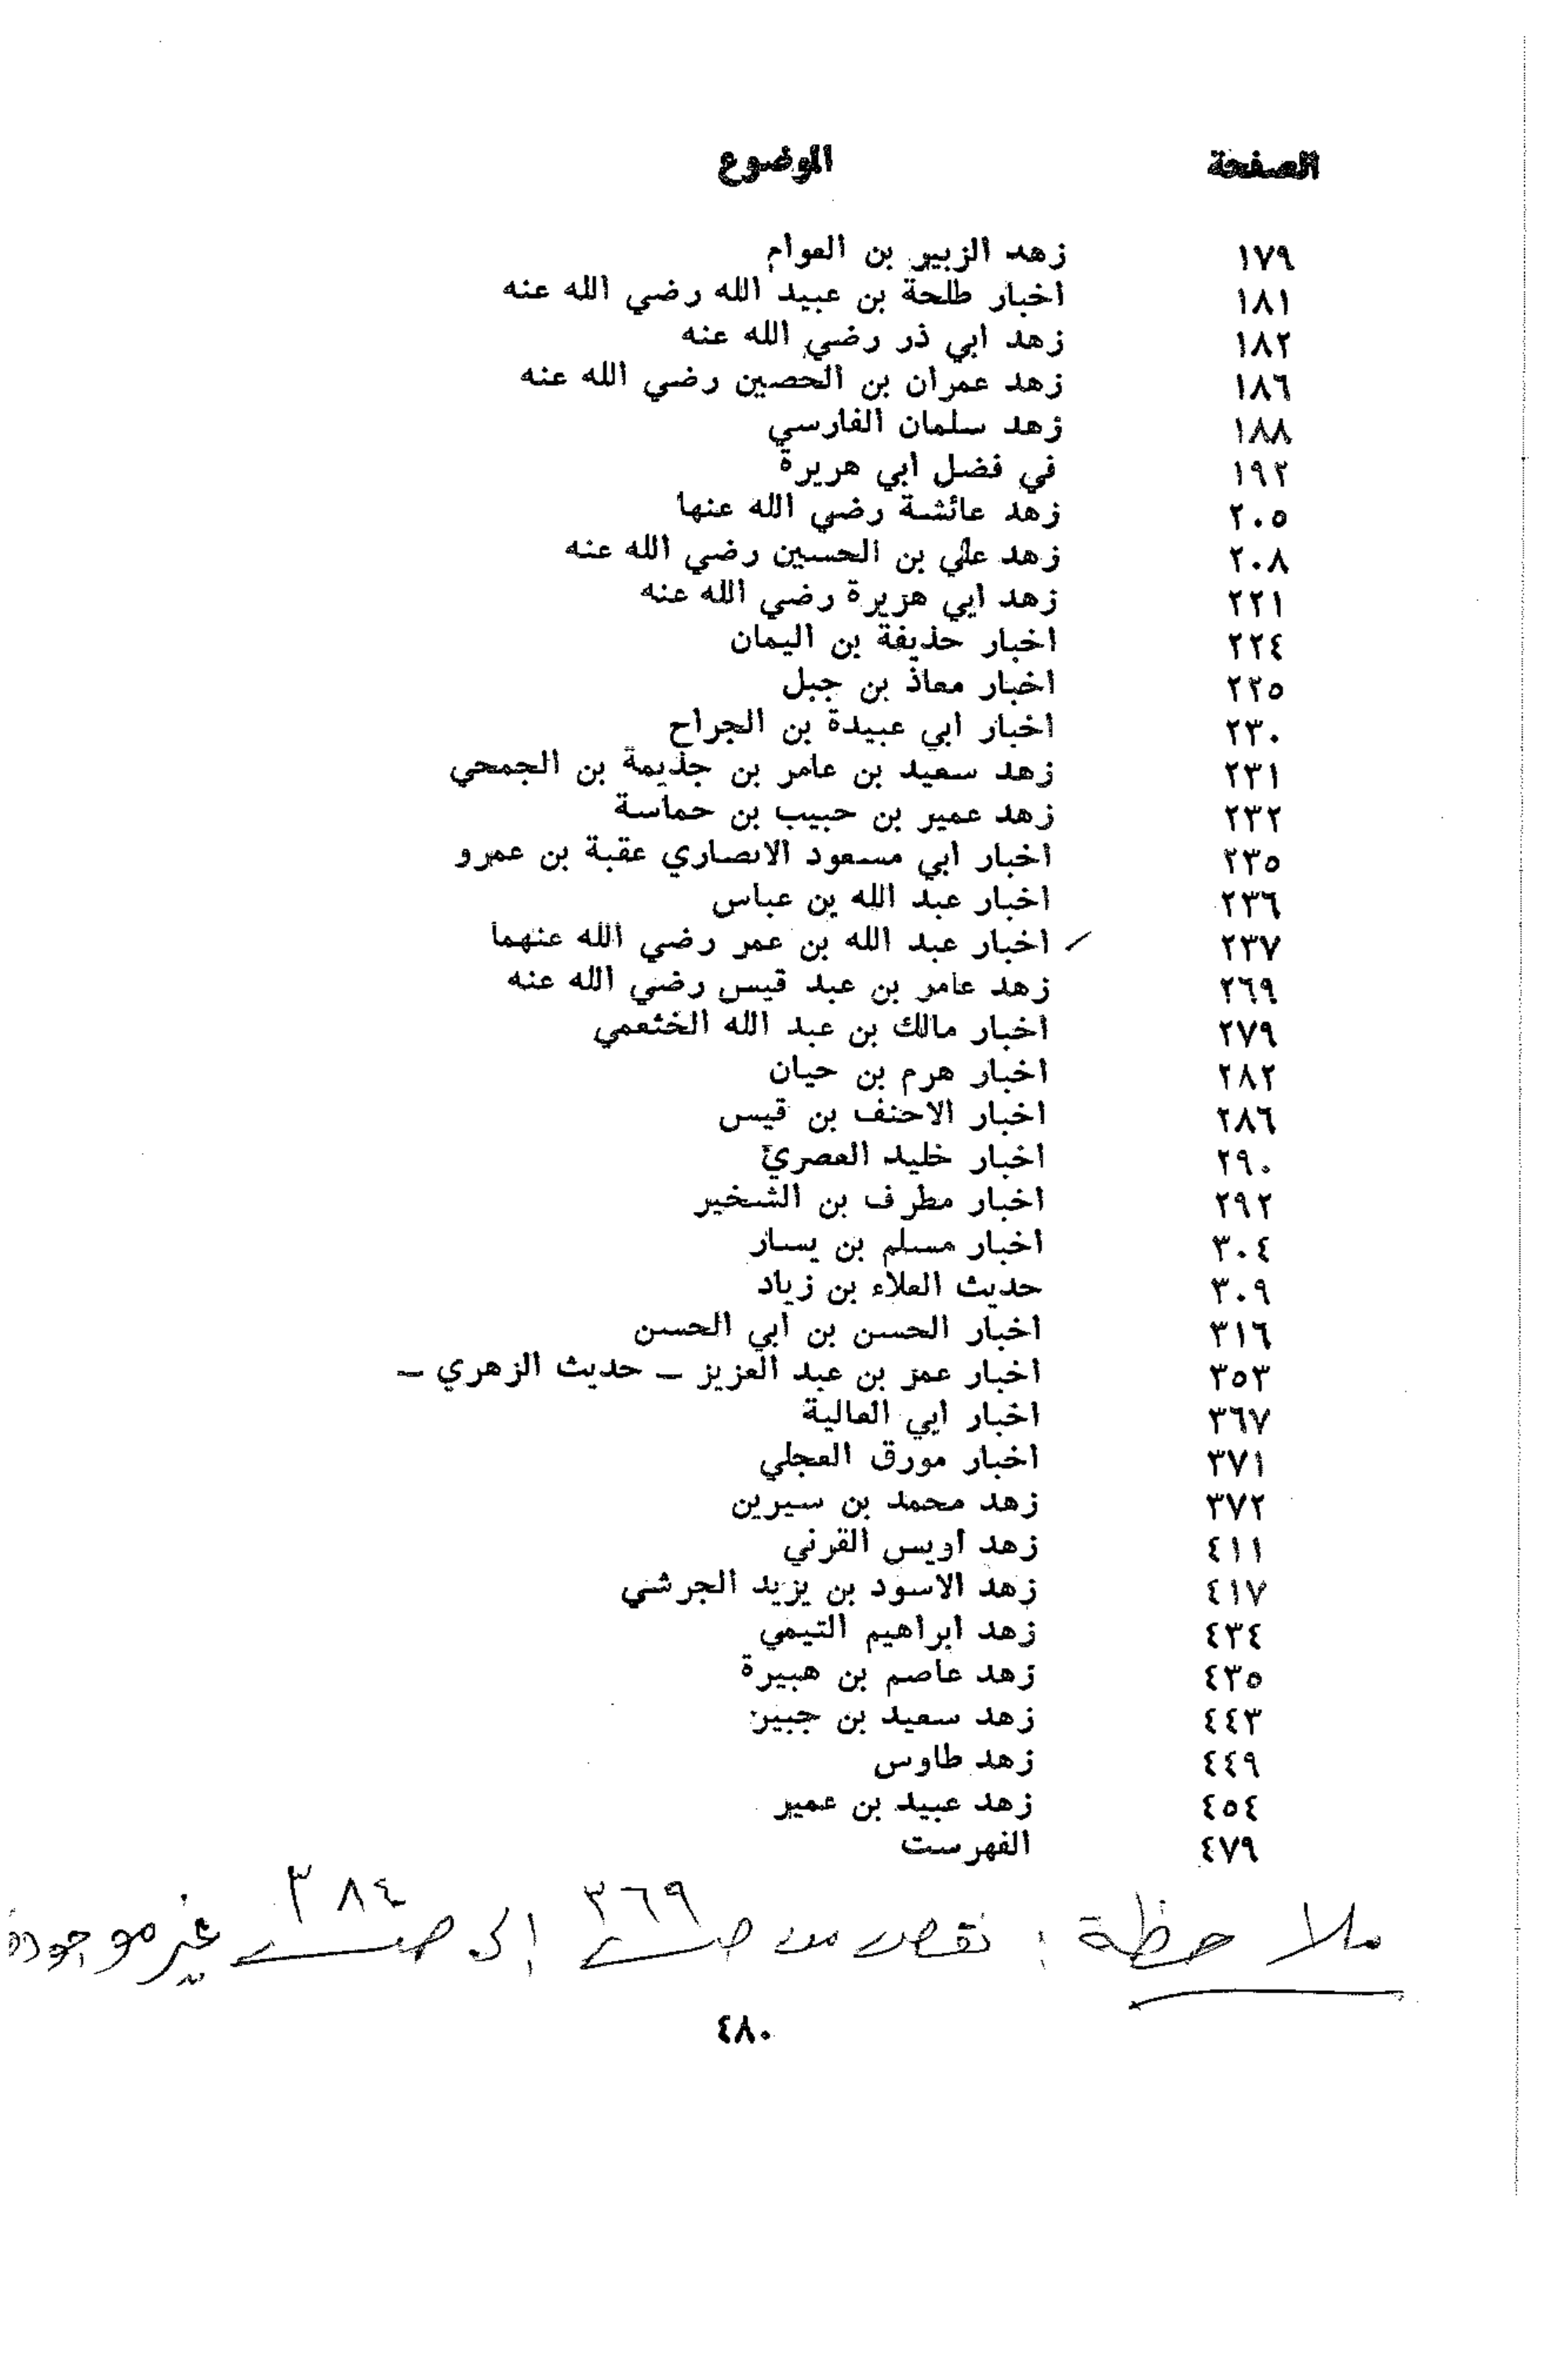 الصفحة الموضوع
١٧٩ زهد الزبير بن العوام
١٨١ اخبار طلحة بن عبيد الله رضي الله عنه
١٨٢ زهد ابي ذر رضي الله عنه
١٨٦ زهد عمران بن الحصين رضي الله عنه
١٨٨ زهد سلمان الفارسي
١٩٢ في فضل ابي هريرة
٢٠٥ زهد عائشة رضي الله عنها
٢٠٨ زهد علي بن الحسين رضي الله عنه
٢٢١ زهد ابي هريرة رضي الله عنه
٢٢٤ اخبار حذيفة بن اليمان
٢٢٥ اخبار معاذ بن جبل
٢٣٠ اخبار ابي عبيدة بن الجراح
٢٣١ زهد سعيد بن عامر بن جذيمة بن الجمحي
٢٣٢ زهد عمير بن حبيب بن حماسة
٢٣٥ اخبار ابي مسعود الانصاري عقبة بن عمرو
٢٣٦ اخبار عبد الله بن عباس
٢٣٧ اخبار عبد الله بن عمر رضي الله عنهما
٢٦٩ زهد عامر بن عبد قيس رضي الله عنه
٢٧٩ اخبار مالك بن عبد الله الخثعمي
٢٨٢ اخبار هرم بن حيان
٢٨٦ اخبار الاحنف بن قيس
٢٩٠ اخبار خليد العصري
٢٩٢ اخبار مطرف بن الشخير
٣٠٤ اخبار مسلم بن يسار
٣٠٩ حديث العلاء بن زياد
٣١٦ اخبار الحسن بن ابي الحسن
٣٥٣ اخبار عمر بن عبد العزيز – حديث الزهري –
٣٦٧ اخبار ابي العالية
٣٧١ اخبار مورق العجلي
٣٧٢ زهد محمد بن سيرين
٤١١ زهد اويس القرني
٤١٧ زهد الاسود بن يزيد الجرشي
٤٣٤ زهد ابراهيم التيمي
٤٣٥ زهد عاصم بن هبيرة
٤٤٣ زهد سعيد بن جبير
٤٤٩ زهد طاوس
٤٥٤ زهد عبيد بن عمير
٤٧٩ الفهرست
ملاحظة : نقص من صـ ٣٦٩ إلى صـ ٣٨٤ غير موجودة
٤٨٠